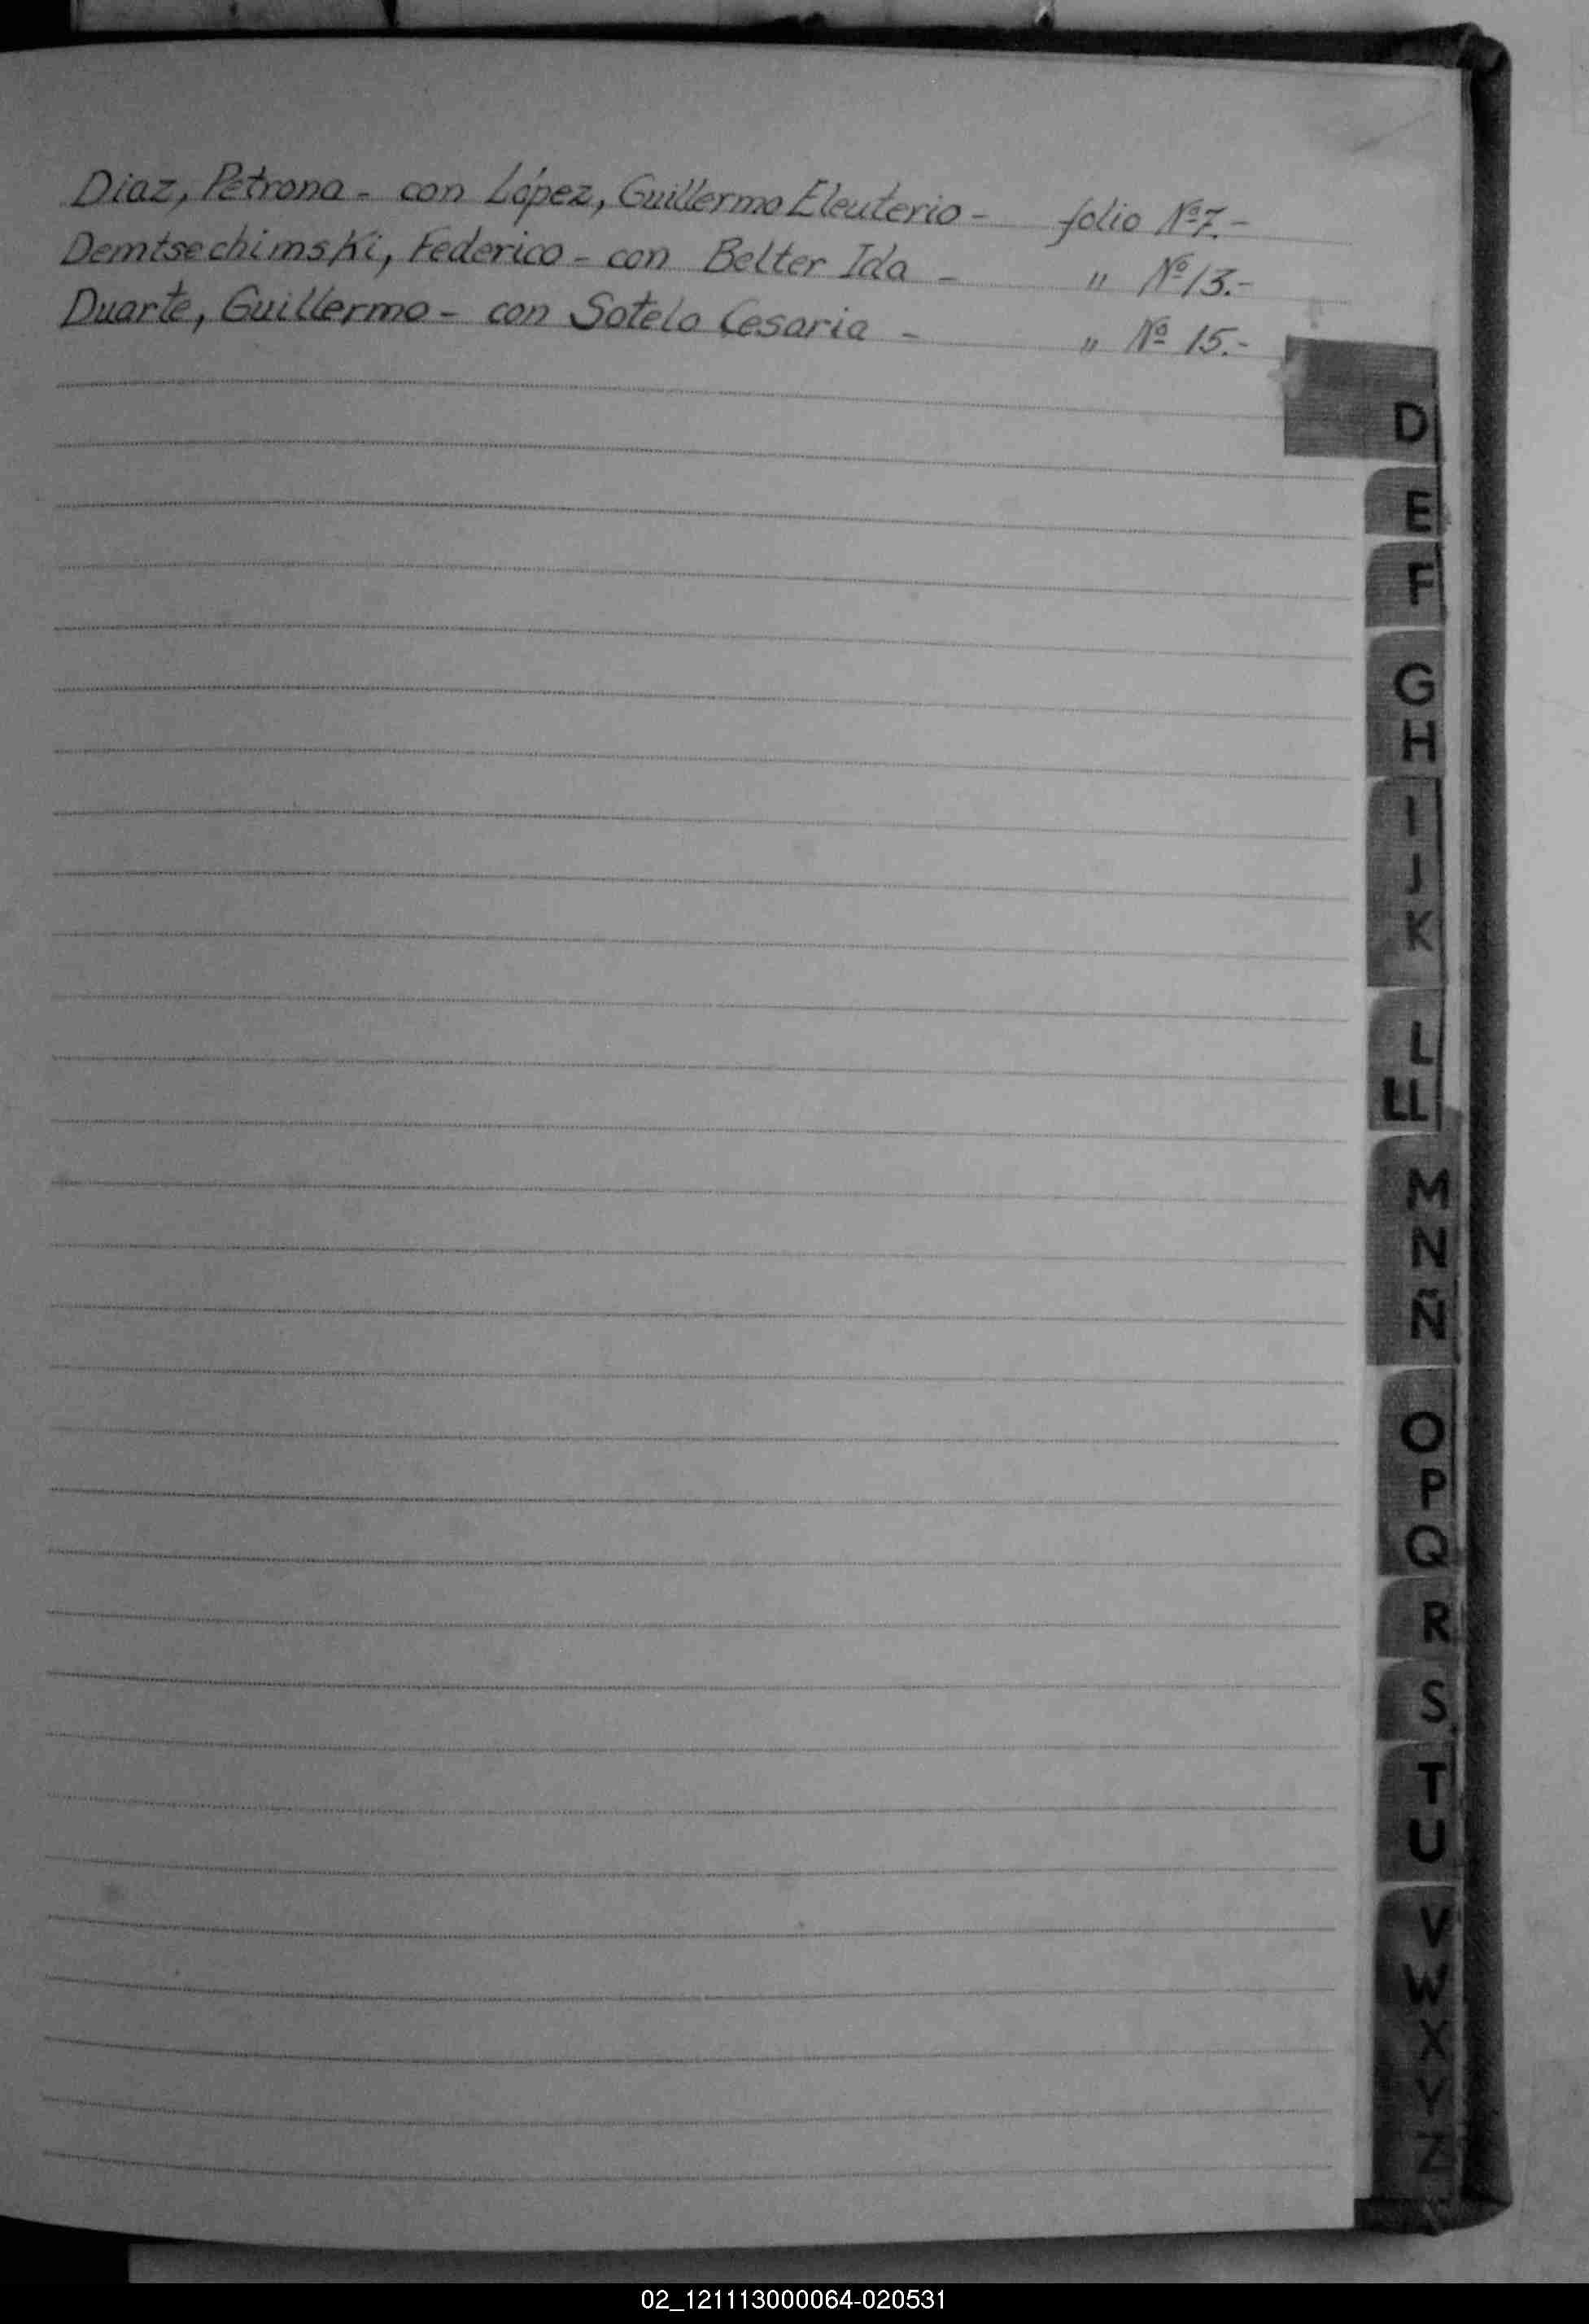 Diaz, Petrona - con López, Guillermo Eleuterio - folio Nº 7.-
Demtsechimski, Federico - con Belter Ida - " Nº 13.-
Duarte, Guillermo - con Sotelo Cesaria - " Nº 15.-
D
E
F
G
H
I
J
K
L
LL
M
N
Ñ
O
P
Q
R
S
T
U
V
W
X
Y
Z
02_121113000064-020531